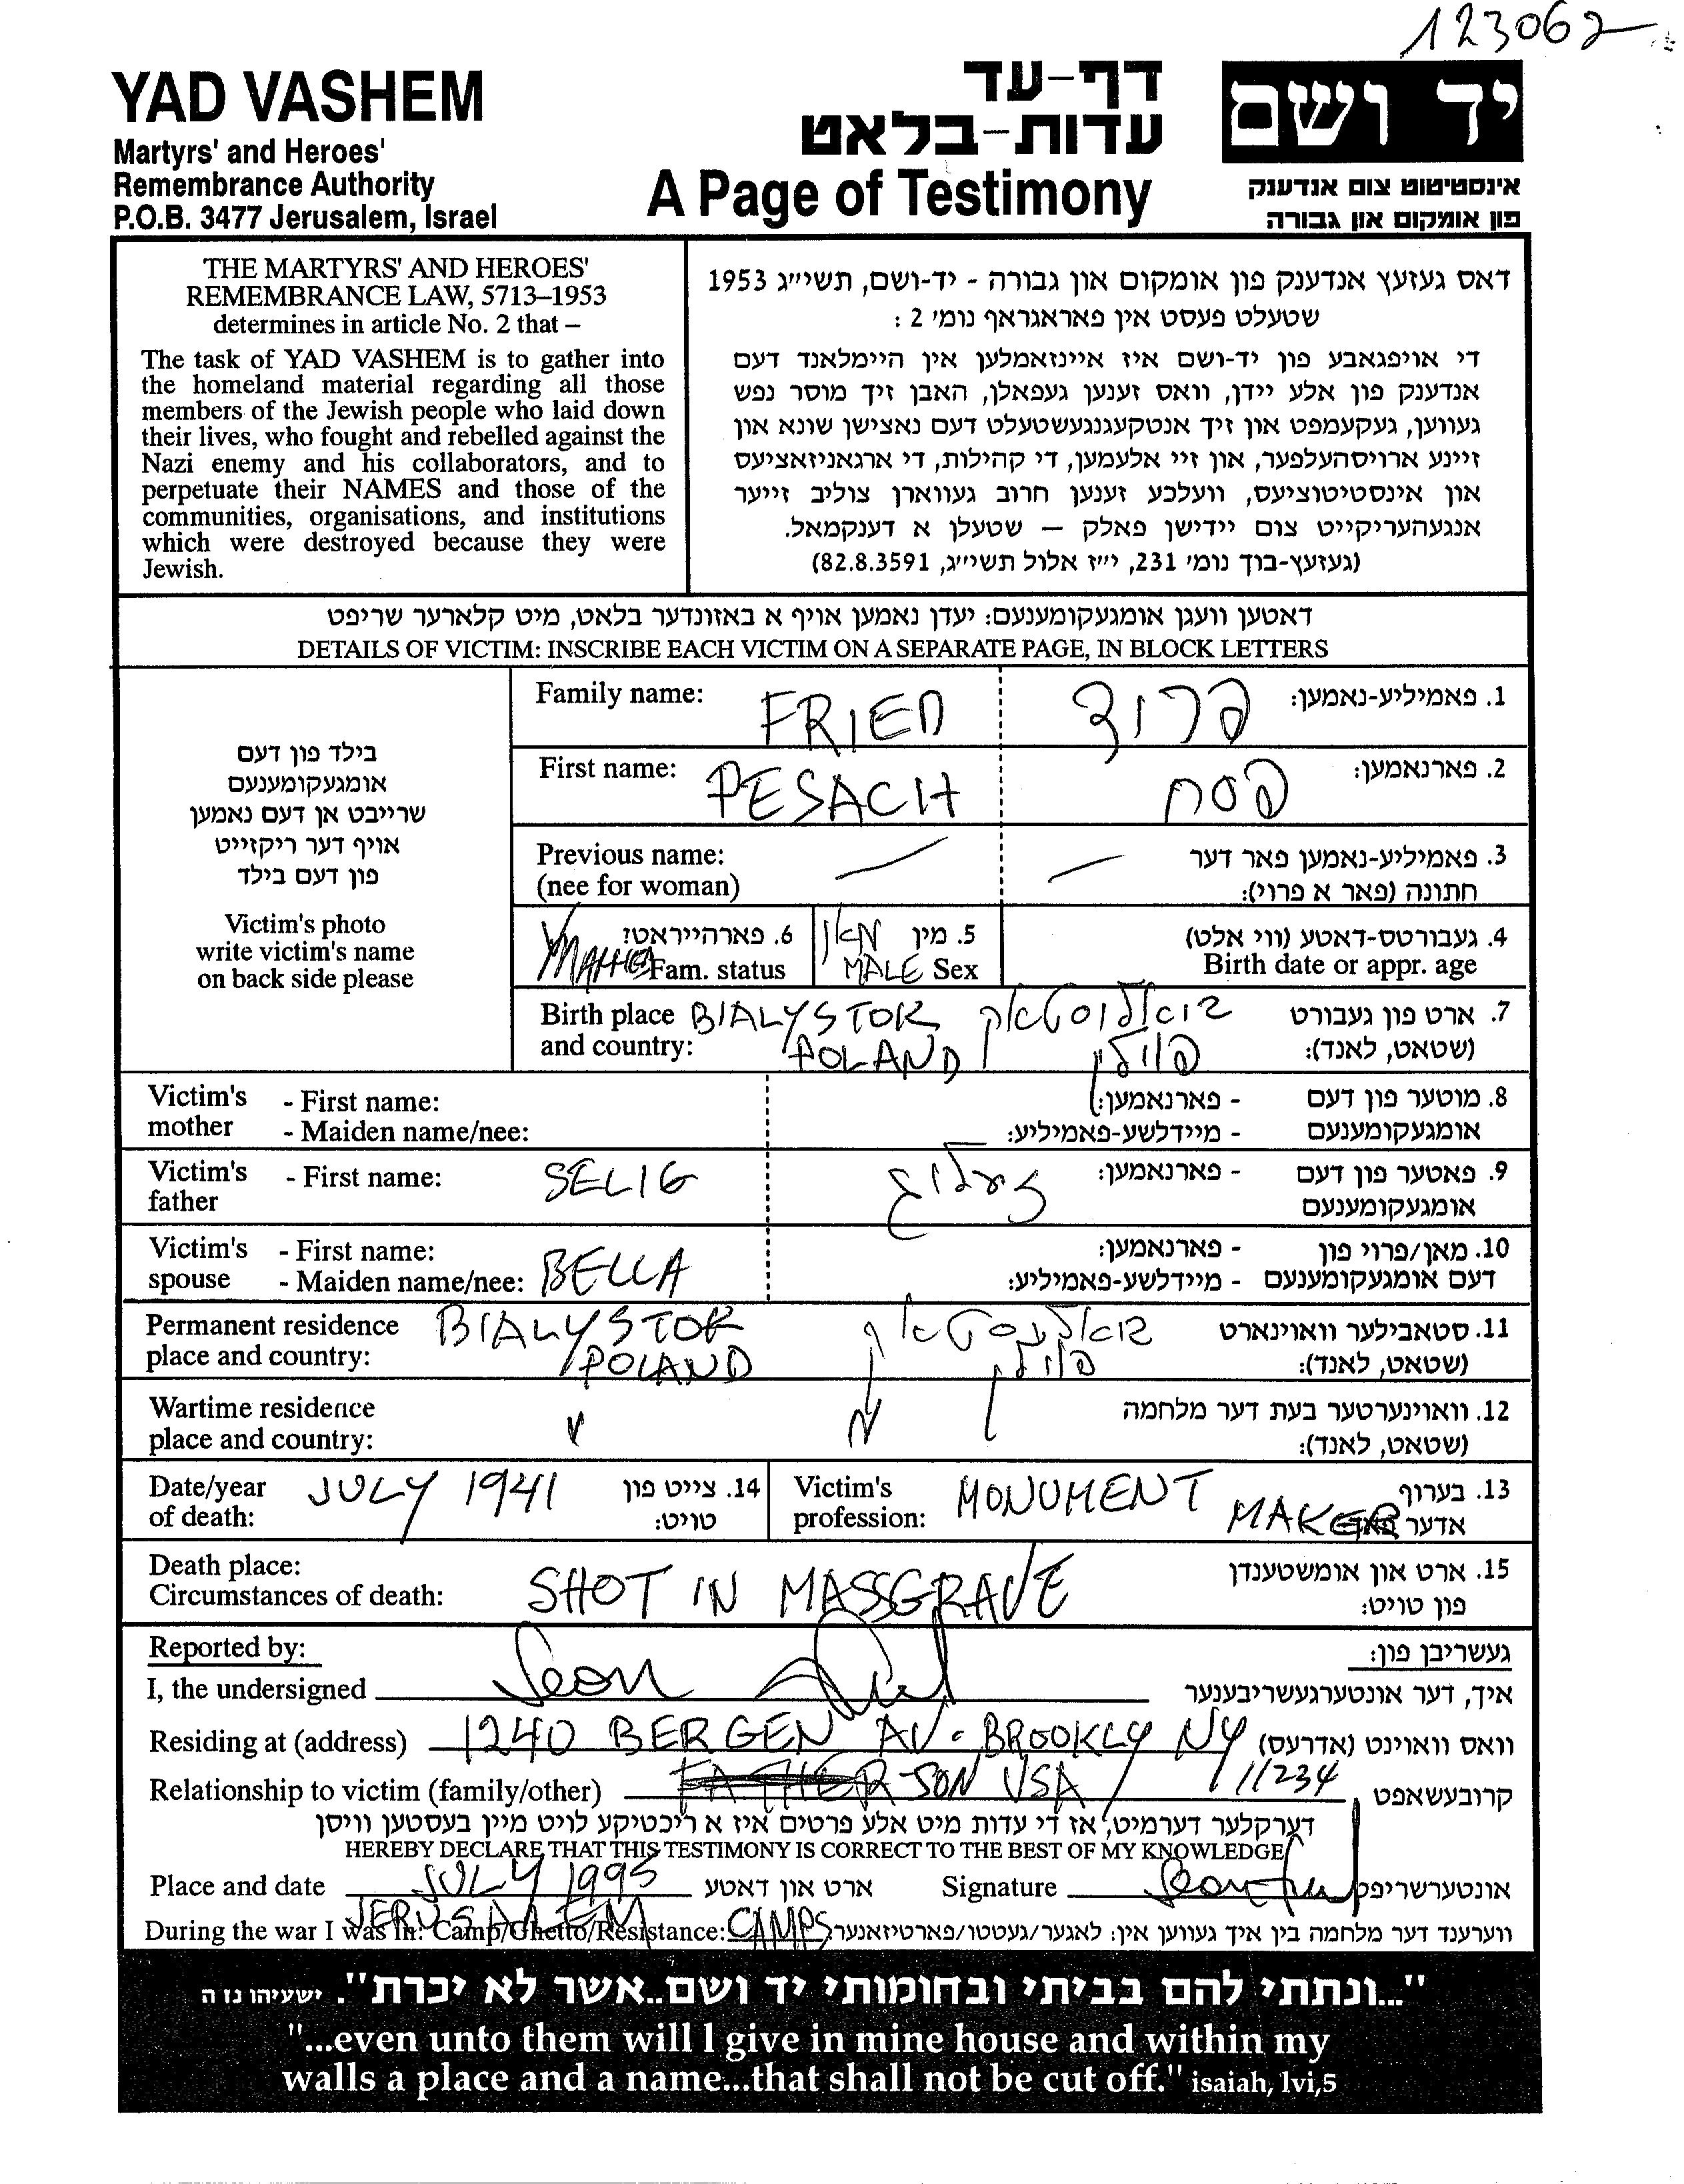 123062
YAD VASHEM
Martyrs' and Heroes'
Remembrance Authority
P.O.B. 3477 Jerusalem, Israel
דף-עד
עדות-בלאט
A Page of Testimony
יד ושם
אינסטיטוט צום אנדענק
פון אומקום און גבורה
THE MARTYRS' AND HEROES'
REMEMBRANCE LAW, 5713–1953
determines in article No. 2 that –
The task of YAD VASHEM is to gather into
the homeland material regarding all those
members of the Jewish people who laid down
their lives, who fought and rebelled against the
Nazi enemy and his collaborators, and to
perpetuate their NAMES and those of the
communities, organisations, and institutions
which were destroyed because they were
Jewish.
דאס געזעץ אנדענק פון אומקום און גבורה - יד-ושם, תשי״ג 1953
שטעלט פעסט אין פאראגראף נומ׳ 2 :
די אויפגאבע פון יד-ושם איז איינזאמלען אין היימלאנד דעם
אנדענק פון אלע יידן, וואס זענען געפאלן, האבן זיך מוסר נפש
געווען, געקעמפט און זיך אנטקעגנגעשטעלט דעם נאצישן שונא און
זיינע ארויסהעלפער, און זיי אלעמען, די קהילות, די ארגאניזאציעס
און אינסטיטוציעס, וועלכע זענען חרוב געווארן צוליב זייער
אנגעהעריקייט צום יידישן פאלק — שטעלן א דענקמאל.
(געזעץ-בוך נומ׳ 231, י״ז אלול תשי״ג, 82.8.3591)
דאטען וועגן אומגעקומענעם: יעדן נאמען אויף א באזונדער בלאט, מיט קלארער שריפט
DETAILS OF VICTIM: INSCRIBE EACH VICTIM ON A SEPARATE PAGE, IN BLOCK LETTERS
בילד פון דעם
אומגעקומענעם
שרייבט אן דעם נאמען
אויף דער ריקזייט
פון דעם בילד
Victim's photo
write victim's name
on back side please
Family name: FRIED פריד 1. פאמיליע-נאמען:
First name: PESACH פסח 2. פארנאמען:
Previous name: 3. פאמיליע-נאמען פאר דער
(nee for woman) חתונה (פאר א פרוי):
6. פארהייראט? 5. מין מאן 4. געבורטס-דאטע (ווי אלט)
Fam. status MALE Sex Birth date or appr. age
Birth place BIALYSTOK ביאליסטאק 7. ארט פון געבורט
and country: POLAND פוילן (שטאט, לאנד):
Victim's - First name: - פארנאמען: 8. מוטער פון דעם
mother - Maiden name/nee: - מיידלשע-פאמיליע: אומגעקומענעם
Victim's - First name: SELIG זעליג - פארנאמען: 9. פאטער פון דעם
father אומגעקומענעם
Victim's - First name: - פארנאמען: 10. מאן/פרוי פון
spouse - Maiden name/nee: BELLA - מיידלשע-פאמיליע: דעם אומגעקומענעם
Permanent residence BIALYSTOK ביאליסטאק 11. סטאבילער וואוינארט
place and country: POLAND פוילן (שטאט, לאנד):
Wartime residence 12. וואוינערטער בעת דער מלחמה
place and country: (שטאט, לאנד):
Date/year JULY 1941 14. צייט פון Victim's MONUMENT 13. בערוף
of death: טויט: profession: MAKER אדער פאך
Death place: 15. ארט און אומשטענדן
Circumstances of death: SHOT IN MASSGRAVE פון טויט:
Reported by: געשריבן פון:
I, the undersigned Leon איך, דער אונטערגעשריבענער
Residing at (address) 1240 BERGEN AV. BROOKLY NY וואס וואוינט (אדרעס)
Relationship to victim (family/other) FATHER SON USA 11234 קרובעשאפט
דערקלער דערמיט, אז די עדות מיט אלע פרטים איז א ריכטיקע לויט מיין בעסטען וויסן
HEREBY DECLARE THAT THIS TESTIMONY IS CORRECT TO THE BEST OF MY KNOWLEDGE
Place and date JULY 1995 ארט און דאטע Signature Leon אונטערשריפט
JERUSALEM
During the war I was in: Camp/Ghetto/Resistance: CAMPS ווערענד דער מלחמה בין איך געווען אין: לאגער/געטטו/פארטיזאנער
"...ונתתי להם בביתי ובחומותי יד ושם..אשר לא יכרת". ישעיהו נו ה
"...even unto them will I give in mine house and within my
walls a place and a name...that shall not be cut off." isaiah, lvi,5